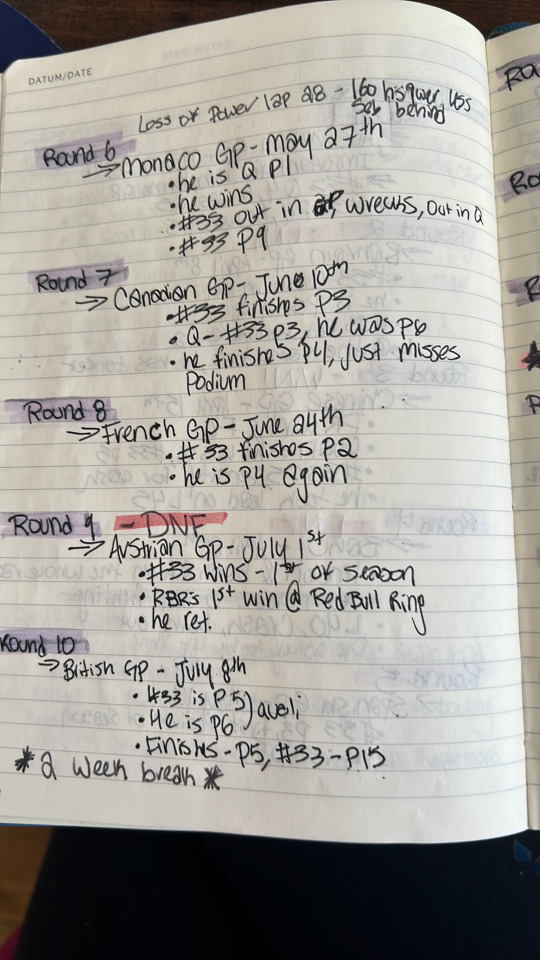 DATUM/DATE
Loss of Power lap 28 - 160 hsqwer loss
Seb behind
Round 6
→ Monaco GP - May 27th
• he is Q P1
• he wins
• #33 out in wrecks, out in Q
• #33 P9
Round 7
→ Canadian GP - June 10th
• #33 finishes P3
• Q - #33 P3, he was P6
• he finishes P4, just misses
Podium
Round 8
→ French GP - June 24th
• #33 finishes P2
• he is P4 again
Round 9 - DNF
→ Austrian GP - July 1st
• #33 wins - 1st of season
• RBR's 1st win @ Red Bull Ring
• he ret.
Round 10
→ British GP - July 8th
• #33 is P5) quali
• He is P6
• Finishs - P5, #33 - P15
* 2 week break *
Rou
Ro
R